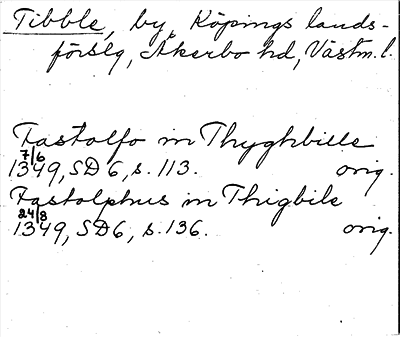 Tibble, by, Köpings lands-
förslg, Åkerbo hd, Västm. l.
Fastolfo in Thyghbille
7/6
1349, SD 6, s. 113. orig.
Fastolphus in Thigbile
24/8
1349, SD 6, s. 136. orig.